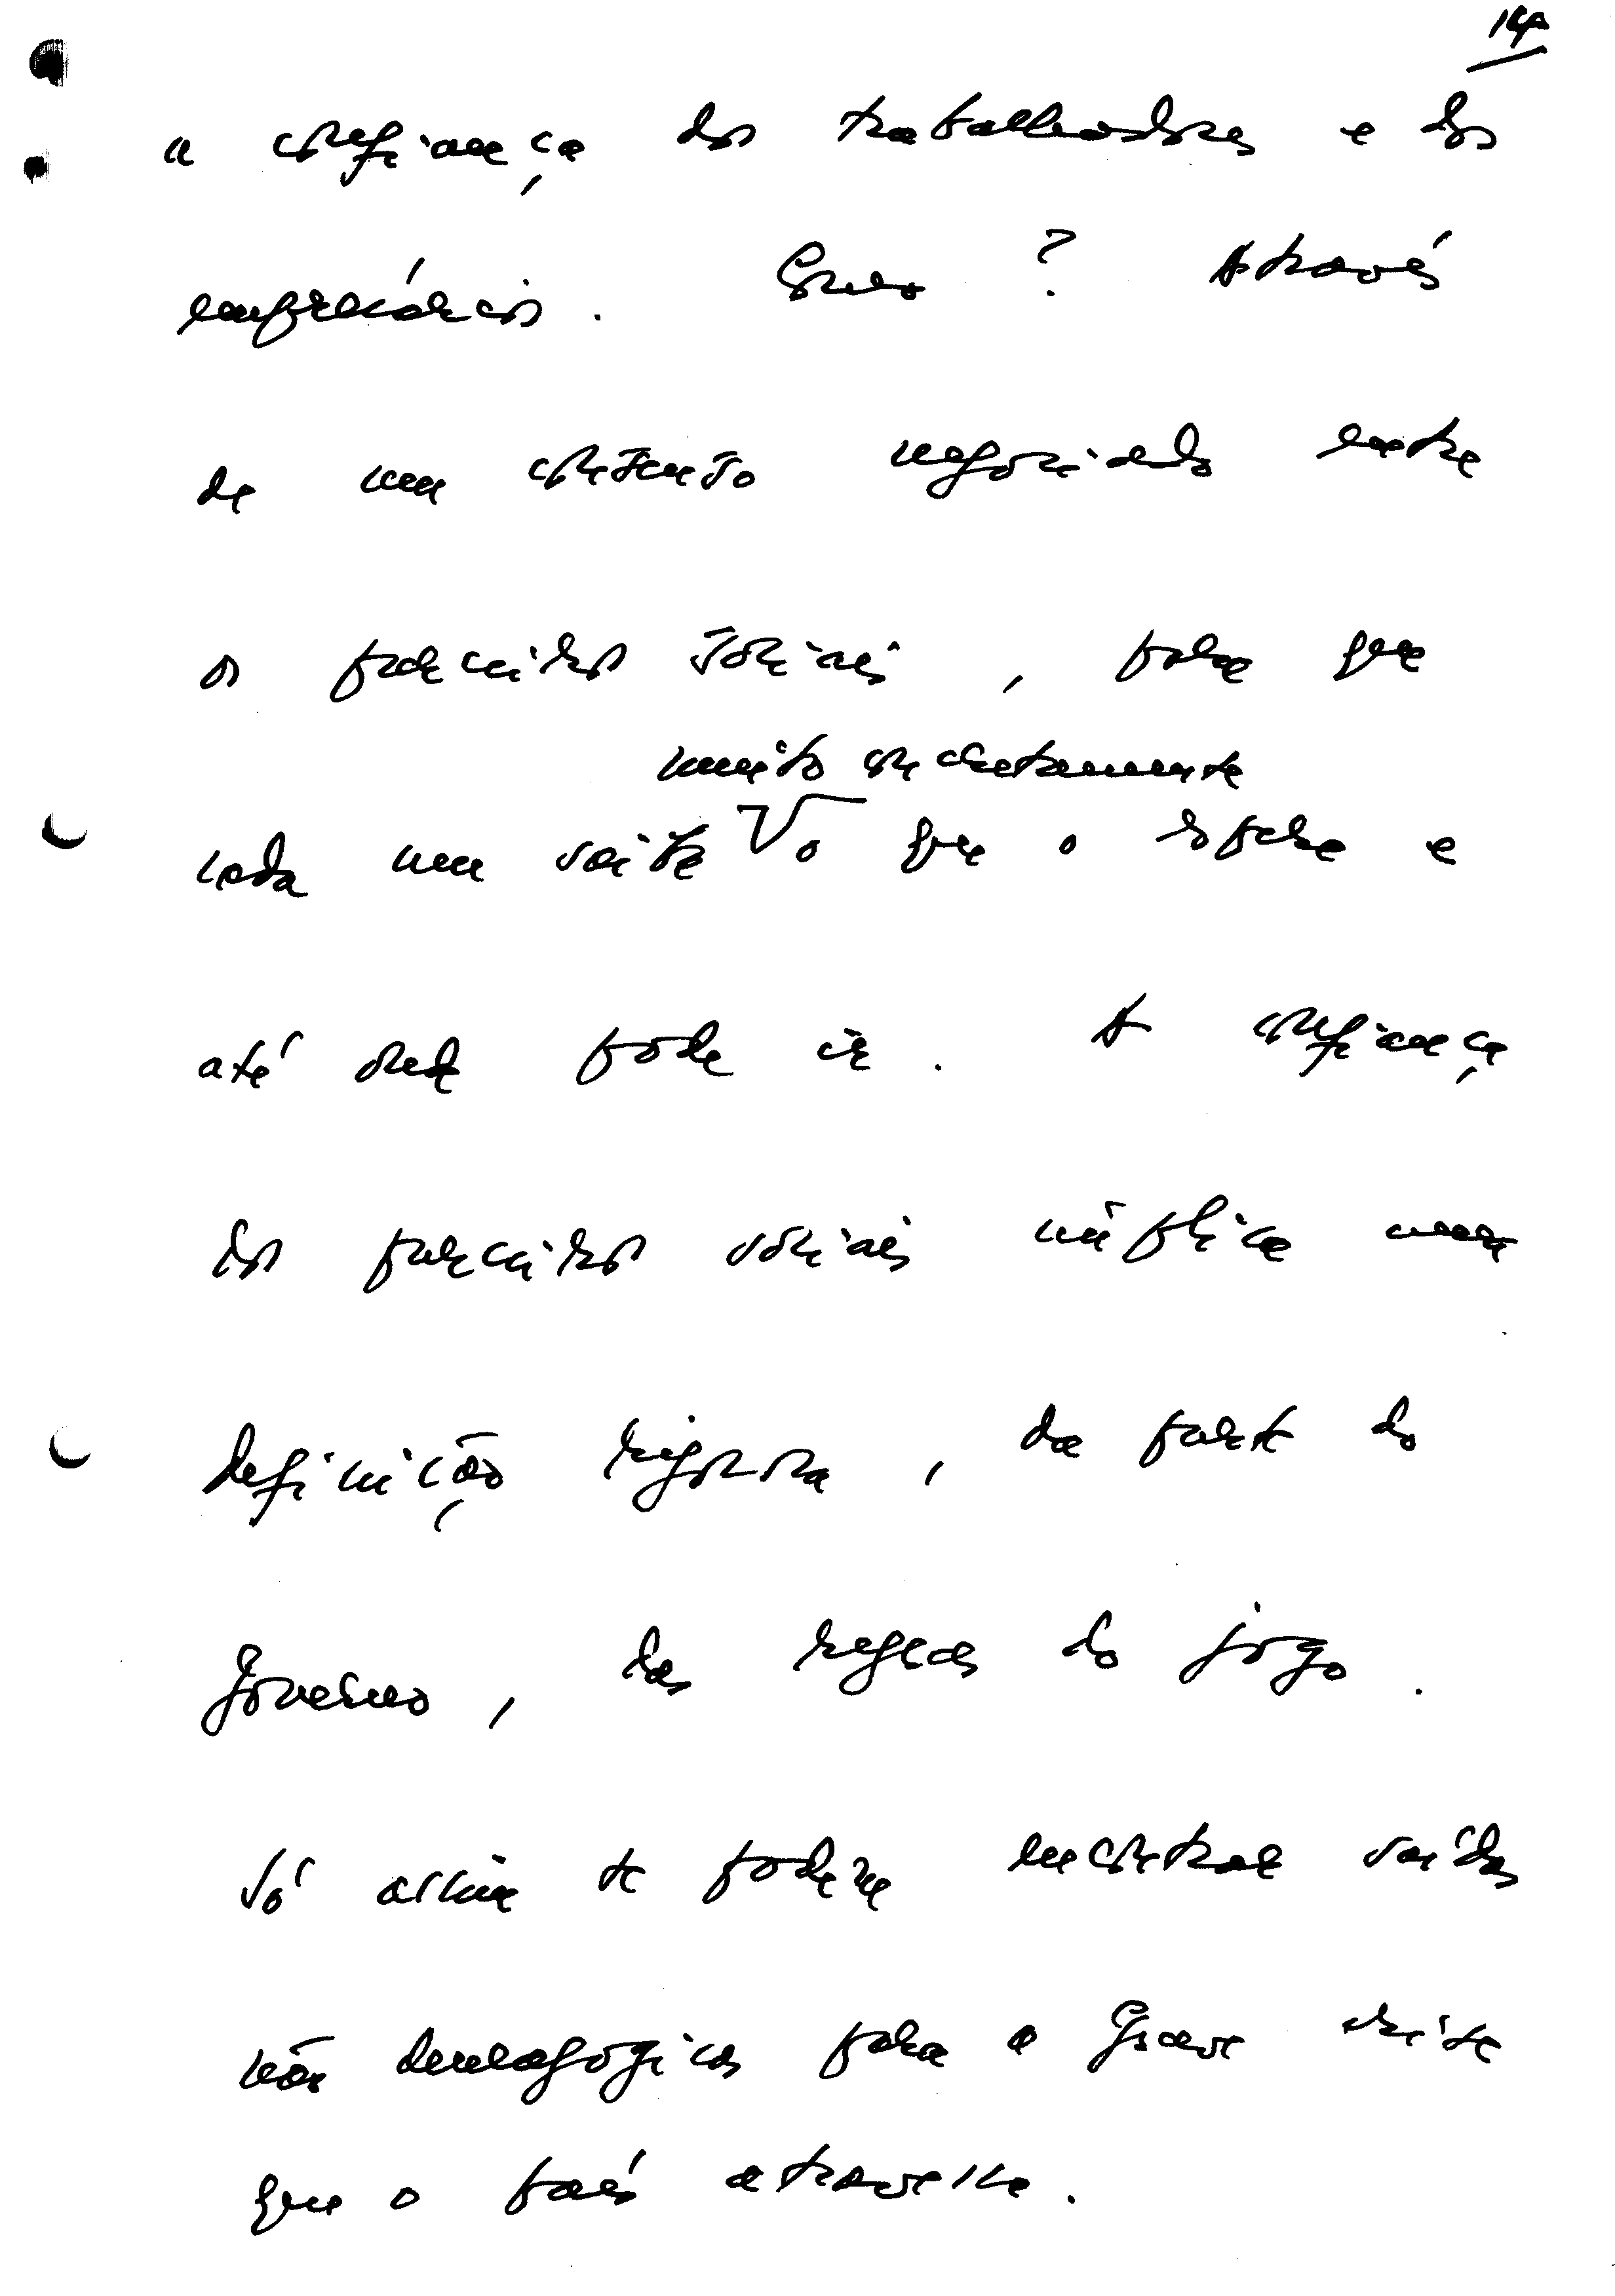 14
a confiança dos trabalhadores e dos
empresários. Como? Através
de um consenso negociado entre
os parceiros sociais, para que
muito concretamente
cada um saiba o que o espera e
até onde pode ir. A confiança
dos parceiros sociais implica uma
definição rigorosa, da parte do
Governo, das regras do jogo.
Só assim se podem encontrar saídas
não demagógicas para a grave crise
que o país atravessa.